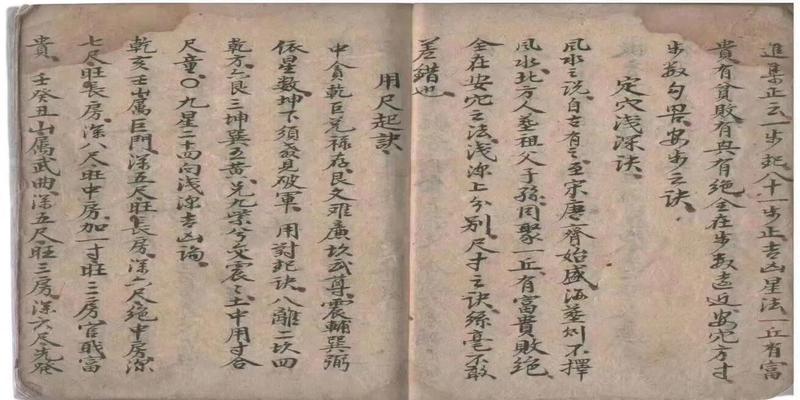 進集正云一步起八十一步正吉凶星法一丘有富
貴有貧敗有與有絕全在步数遠近安穴方寸
步数勾畧安步之訣
定穴浅深訣
風水之説自古有之至宋唐齊始盛海葬剡不擇
風水北方人葬祖父子孫同聚一丘有富貴敗絕
全在安穴之法浅深上分别尺寸之訣絲毫不敢
差錯也
用尺起訣
中貪乾巨兌禄存艮文难廉坎武尊震輔巽弼
依星数坤下須發見破軍用對起訣八離二坎四
乾方六艮三坤巽五黄兌九紫兮交震之土中用寸合
尺童〇九星二十四向浅深吉凶論
乾亥壬山属巨門深五尺旺長房深六尺絕中房深
七尺旺長房深八尺旺中房加一寸旺三房官职富
貴壬癸丑山属武曲深五尺旺三房深六尺先發